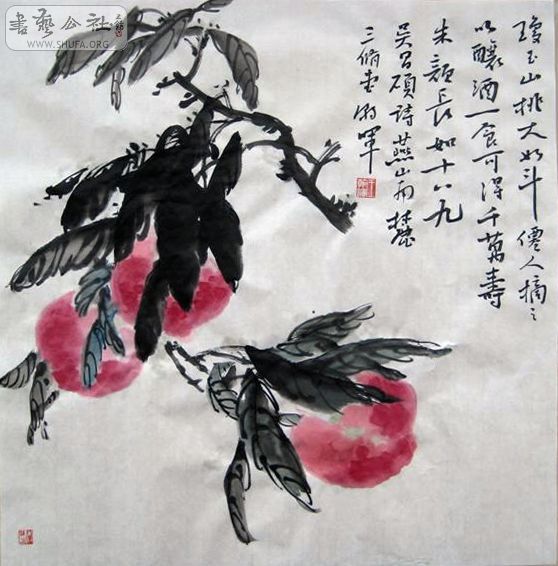 書藝公社
WWW.SHUFA.ORG
瓊玉山桃大如斗僊人摘之
以釀酒一食可得千萬壽
朱顏長如十八九
吴昌碩詩燕山南麓
三脩堂